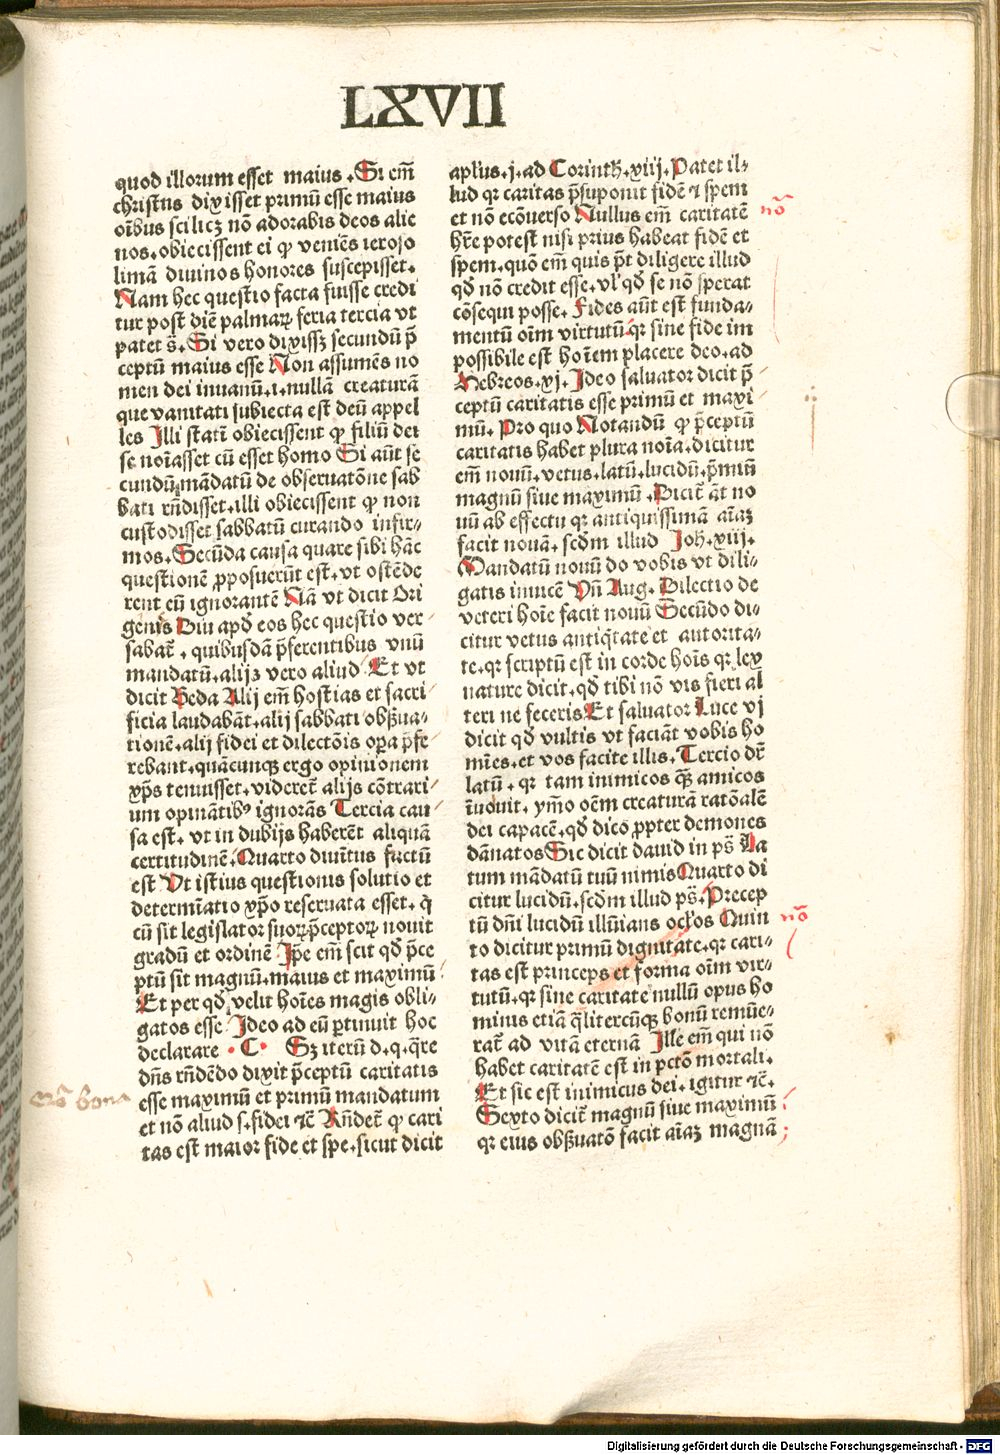 LXVII
quod illorum esset maius. Si em̄
christus dixisset primū esse maius
oībus scilicꝫ nō adorabis deos alie
nos. obiecissent ei ꝙ veniēs ierosо
limā diuinos honores suscepisset.
Nam hec questio facta fuisse credi
tur post diē palmaꝝ feria tercia vt
patet s̄. Si vero dixissꝫ secundū p̄
ceptū maius esse Non assumēs no
men dei inuanū .i. nullā creaturā
que vanitati subiecta est deū appel
les Illi statī obiecissent ꝙ filiū dei
se noīasset cū esset homo Si aūt se
cundū mādatū de obseruatōne sab
bati rn̄disset. illi obiecissent ꝙ non
custodisset sabbatū curando infir⸗
mos. Secūda causa quare sibi hāc
questionē ꝓposuerūt est. vt ostēde
rent eū ignorantē Nā vt dicit Ori
genis Diu apd̄ eos hec questio ver⸗
sabat̄. quibusdā p̄ferentibus vnū
mandatū. alijꝫ vero aliud Et vt
dicit Beda Alij em̄ hostias et sacri⸗
ficia laudabāt. alij sabbati obꝭua⸗
tionē. alij fidei et dilectōis oꝑa p̄fe⸗
rebant. quācunqꝫ ergo opinionem
xp̄s tenuisset. videret̄ alijs cōtrari⸗
um opinātibꝰ ignorās Tercia cau⸗
sa est. vt in dubijs haberēt aliquā
certitudinē. Quarto diuīтus factū
est Vt istius questionis solutio et
determīatio xp̄o reseruata esset. q̄
cū sit legislator suoꝝ p̄ceptoꝝ nouit
gradū et ordinē Ip̄e em̄ scit qd̄ p̄ce
ptū sit magnū. maius et maximū
Et per qd̄ velit hoīes magis obli⸗
gatos esse Ideo ad eū ꝑtinuit hoc
declarare . C . Sꝫ iterū d. q. q̄re
dn̄s rn̄dēdo dixit p̄ceptū caritatis
esse maximū et primū mandatum
et nō aliud s. fidei ⁊c̄ Rn̄det̄ ꝙ cari
tas est maior fide et spe. sicut dicit
apl̄us .j. ad Corinth̄. xiij. Patet il⸗
lud qꝛ caritas p̄suponit fidē ⁊ spem
et nō ecōuerso Nullus em̄ caritatē
hr̄e potest nisi prius habeat fidē et
spem. quō em̄ quis p̄t diligere illud
qd̄ nō credit esse. vl̓ qd̄ se nō sperat
cōsequi posse. Fides aūt est funda⸗
mentū oīm virtutū qꝛ sine fide im
possibile est hoīem placere deo. ad
Hebreos. xj. Ideo saluator dicit p̄⸗
ceptū caritatis esse primū et maxi⸗
mū. Pro quo Notandū ꝙ p̄ceptū
caritatis habet plura noīa. dicitur
em̄ nouū. vetus. latū. lucidū. p̄mū
magnū siue maximū. Dicit̄ āt no
uū ab effectu qꝛ antiquissimā aīaꝫ
facit nouā. scd̄m illud Joh̄. xiij.
Mandatū nouū do vobis vt dili⸗
gatis inuicē Vn̄ Aug. Dilectio de
veteri hoīe facit nouū Secūdo di⸗
citur vetus antiq̄tate et autorita⸗
te. qꝛ scriptū est in corde hoīs qꝛ lex
nature dicit. qd̄ tibi nō vis fieri al̄
teri ne feceris Et saluator Luce vj
dicit qd̄ vultis vt faciāt vobis ho
mīes. et vos facite illis. Tercio dr̄
latū. qꝛ tam inimicos q̄ꝫ amicos
īuoluit. ymo oēm creaturā ratōalē
dei capacē. qd̄ dico ꝓpter demones
dānatos Sic dicit dauid in ps̄ La
tum mādatū tuū nimis Quarto di
citur lucidū. scd̄m illud ps̄. Precep
tū dn̄i lucidū illūīans ocl̓os Quin
to dicitur primū dignitate. qꝛ cari⸗
tas est princeps et forma oīm vir⸗
tutū. qꝛ sine caritate nullū opus ho
minis etiā q̄litercūqꝫ bonū remūe⸗
rat̄ ad vitā eternā Ille em̄ qui nō
habet caritatē est in pctō mortali.
Et sic est inimicus dei. igitur ⁊c̄.
Sexto dicit̄ magnū siue maximū
qꝛ eius obꝭuatō facit aīaꝫ magnā
nō
nō
bona
Digitalisierung gefördert durch die Deutsche Forschungsgemeinschaft - DFG